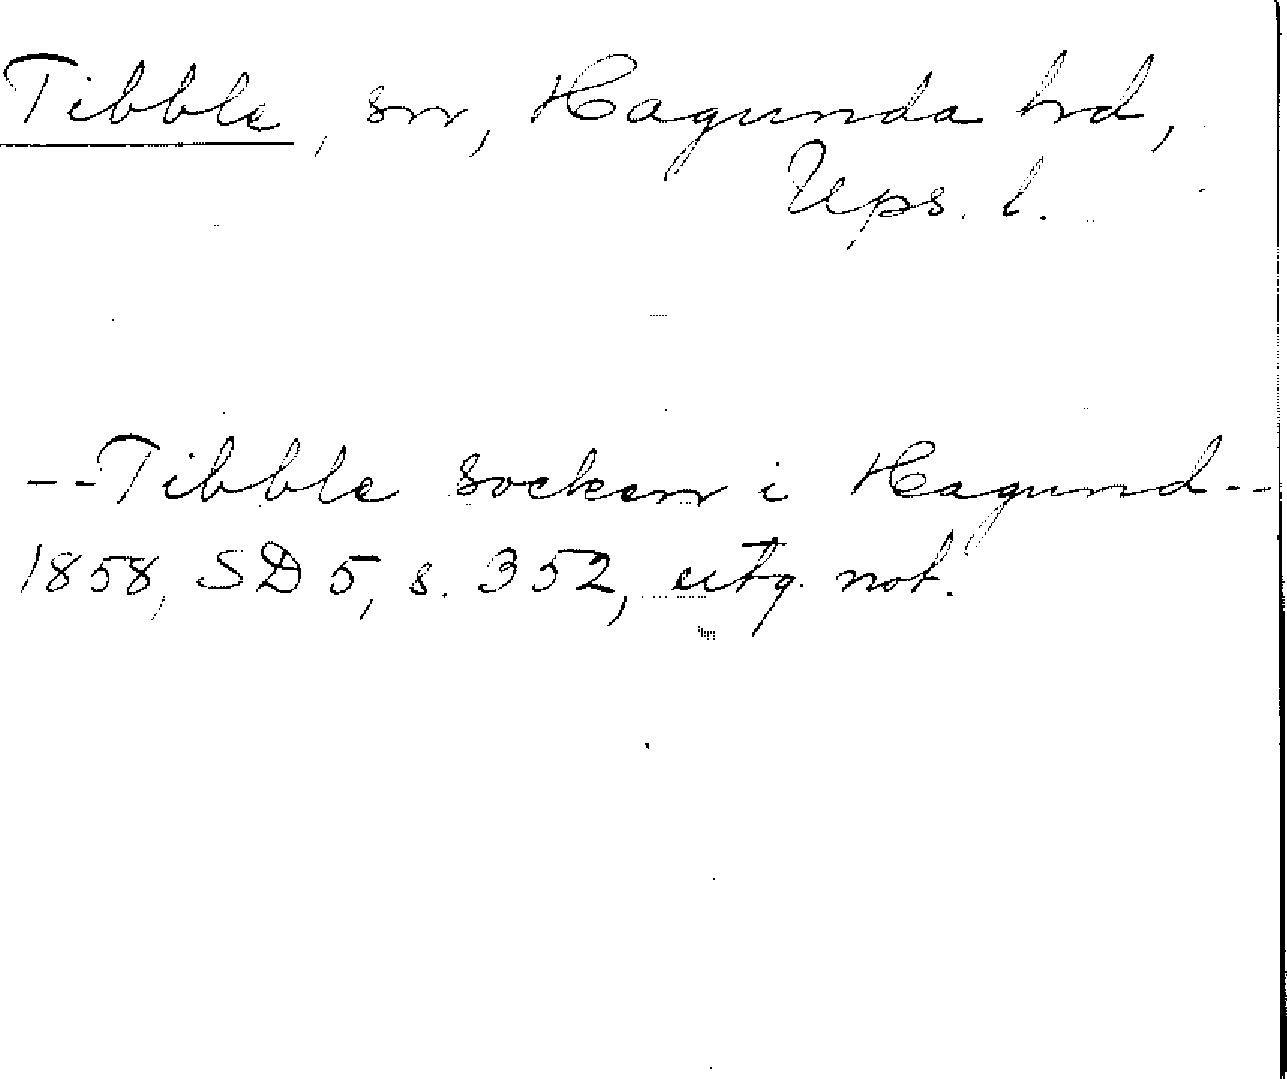 Tibble, sn, Hagunda hd,
Ups. l.
--Tibble socken i Hagund--
1858, SD 5, s. 352, utg. not.